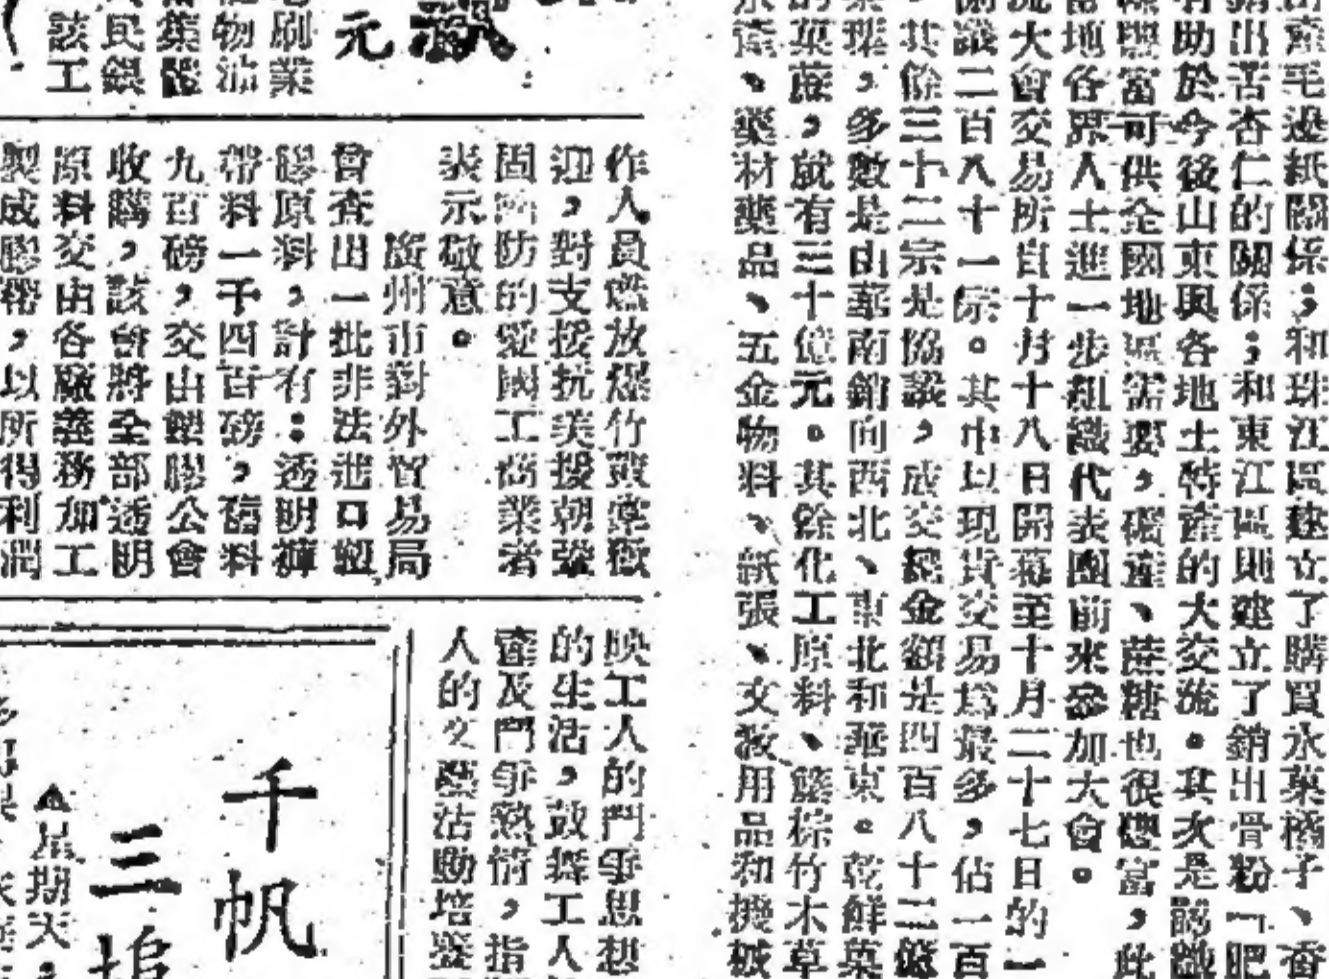 產毛邊紙關係；和珠江區建立了購買水菓橘子、香
銷出苦杏仁的關係；和東江區則建立了銷出骨粉「肥
有助於今後山東與各地土特產的大交流。其次是認識
豐富可供全國地區需要，礦產、蔗糖也很豐富，此
當地各界人士進一步組織代表團前來參加大會。
流大會交易所自十月十八日開幕至十月二十七日的一
議二百八十一宗。其中以現貨交易爲最多，佔一百
，其餘三十二宗是協議，成交總金額是四百八十二億
，多數是由華南銷向西北、東北和華東。乾鮮菓
的菓蔬，就有三十億元。其餘化工原料、籐棕竹木草
水產、藥材藥品、五金物料、紙張、文教用品和機械
元
刷業
物油
集體
民銀
該工
作人員燃放爆竹鼓掌歡
迎，對支援抗美援朝鞏
固國防的愛國工商業者
表示敬意。
廣州市對外貿易局
會查出一批非法進口製
膠原料，計有：透明褲
帶料一千四百磅，舊料
九百磅，交由塑膠公會
收購，該會將全部透明
原料交由各廠義務加工
製成膠帶，以所得利潤
映工人的鬥爭思想
的生活，鼓舞工人
產及鬥爭熱情，指
人的文藝活動培養
千帆
三埠
▲星期天，